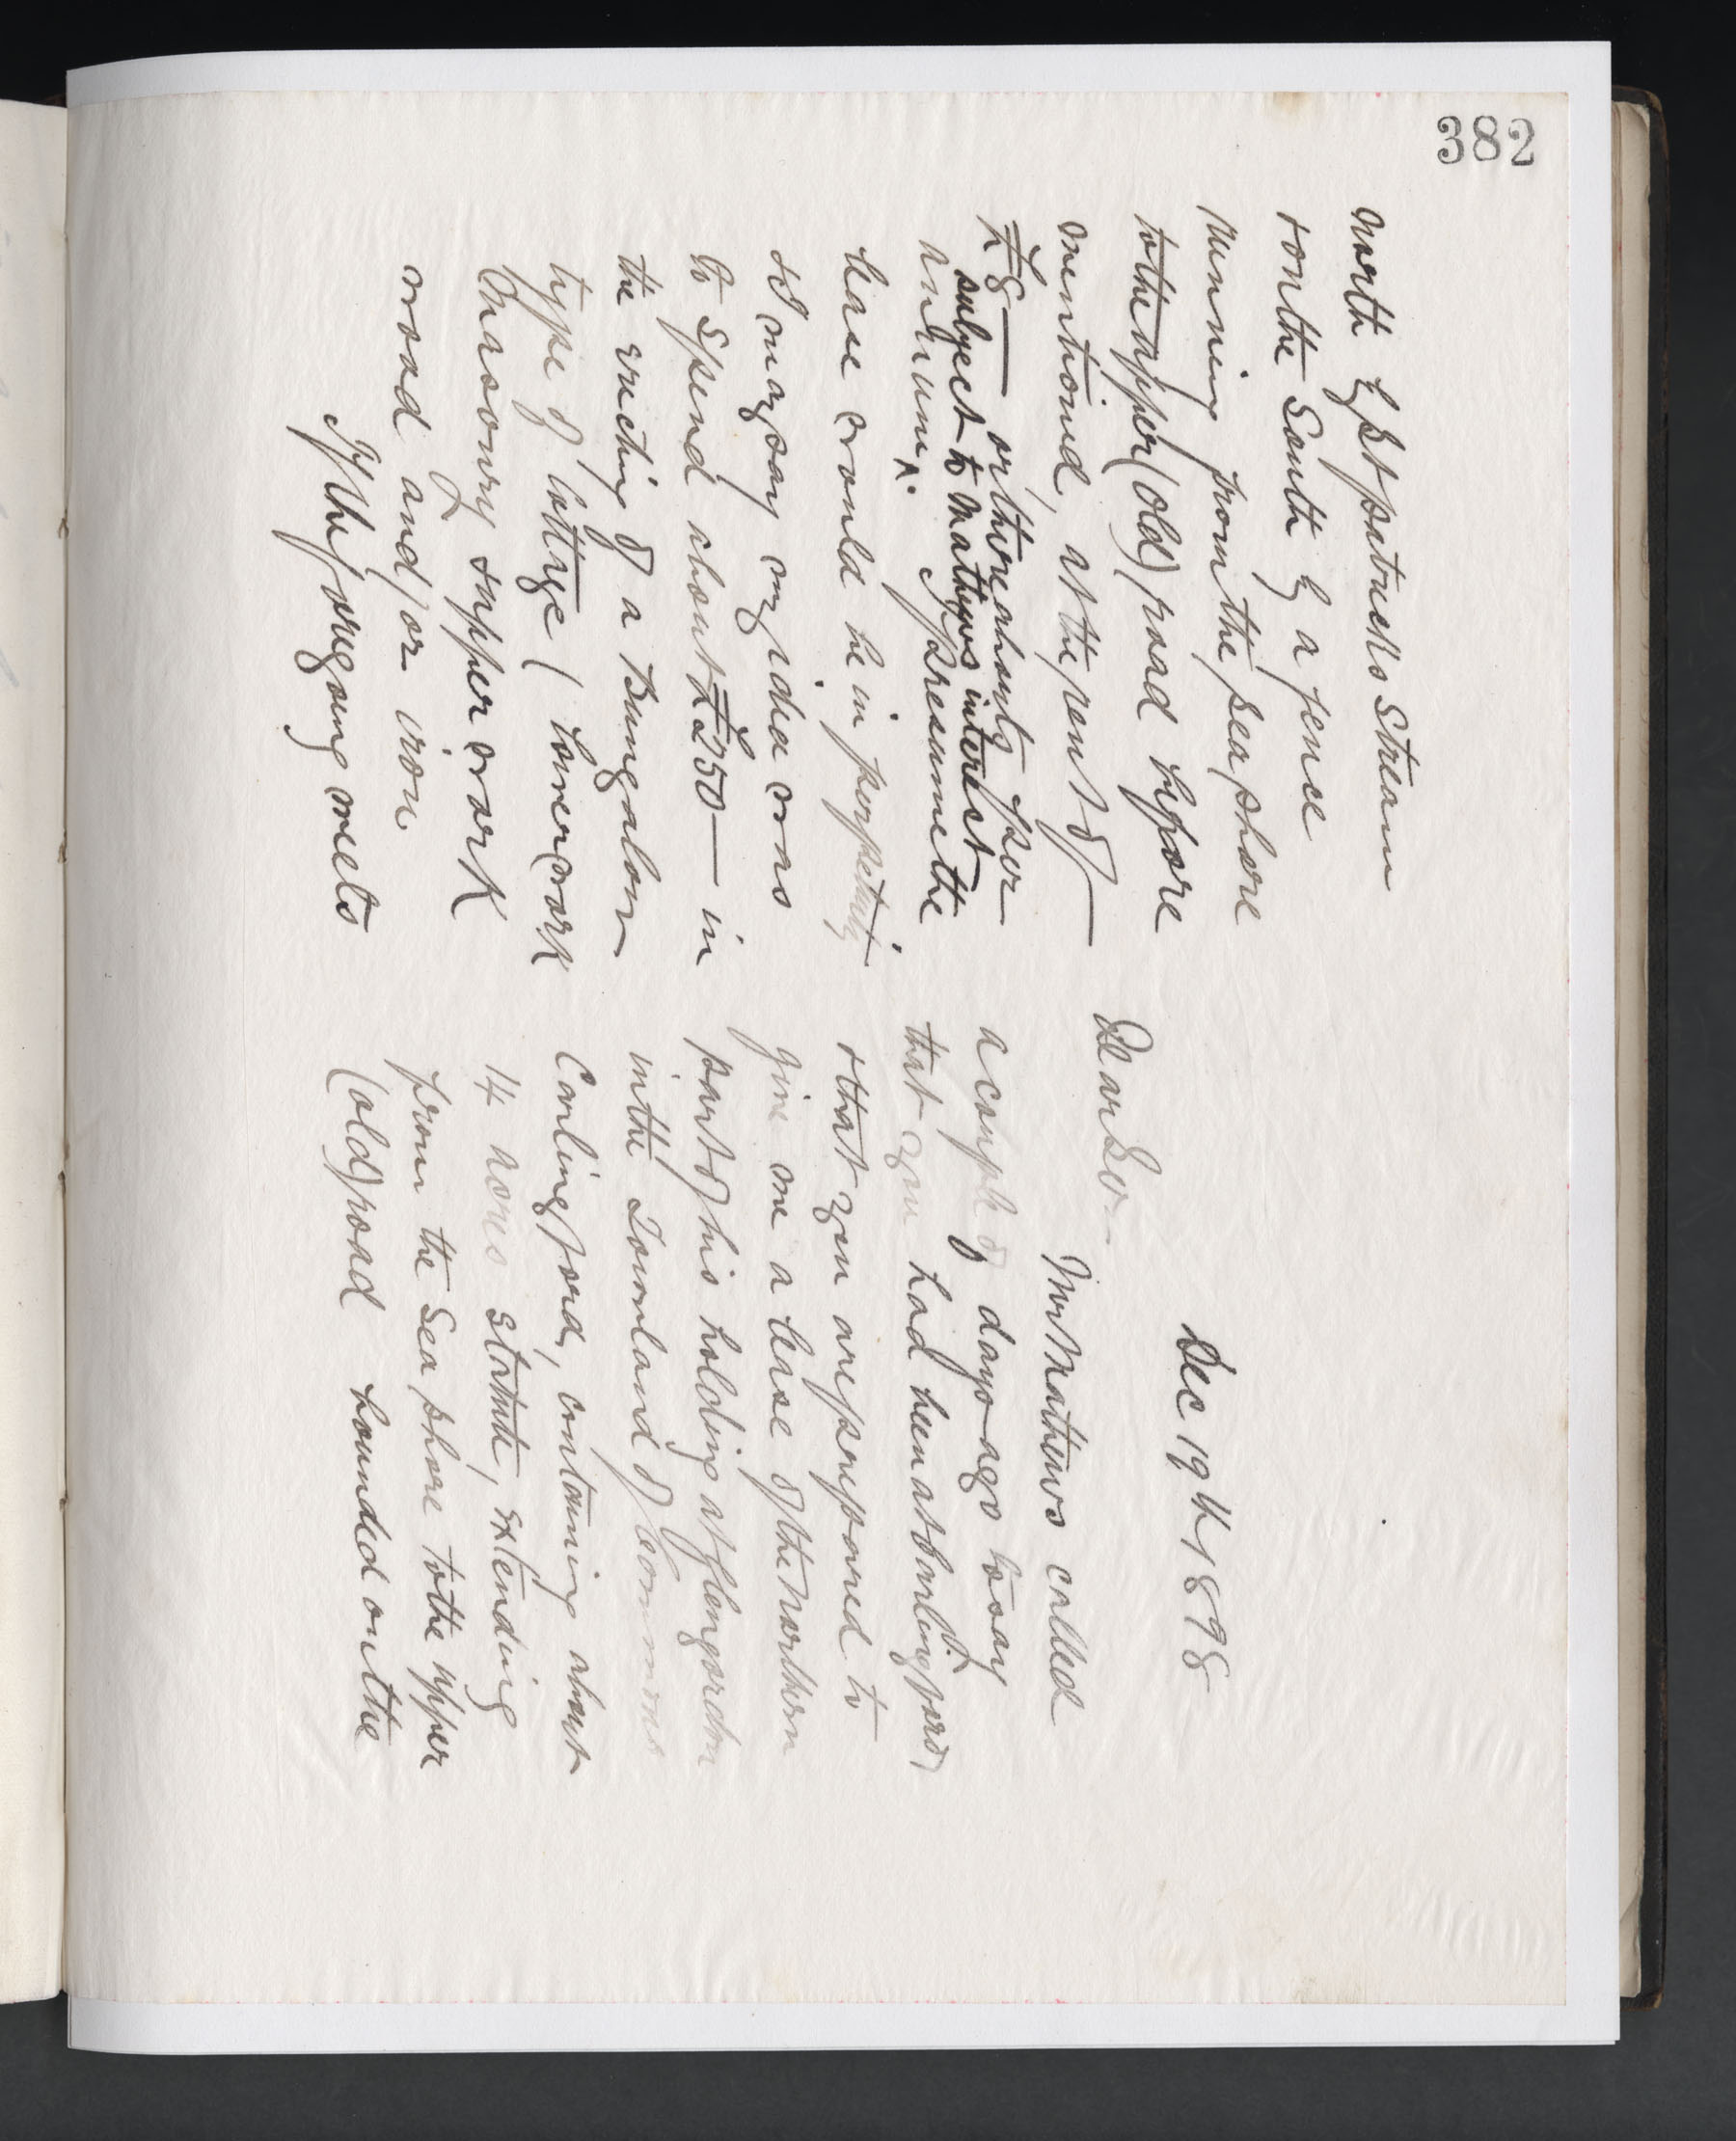 382
Dec 19th/ 898
Dear Sir
Mr Mathews called
a couple of days ago to say
that you had been at Carlingford,
& that you are prepared to
give me a lease of the Northern
part of his holding at
in the Townland of Commons
Carlingford, containing about
14 acres statute, extending
from the Sea shore to the upper
(old) road bounded on the
north by St patricks Stream
& on the South by a fence
running from the sea shore
to the upper (old) road before
mentioned, at the rent of
£8 — or thereabouts per
subject to Mathews interest
annum ^. I presume the
lease would be in perpetuity
& I may say my idea was
to spend about £250 — in
the erecting of a Bungalow
type of Cottage ( lower work
Masonry & upper work
wood and/or iron.
If the foregoing meets